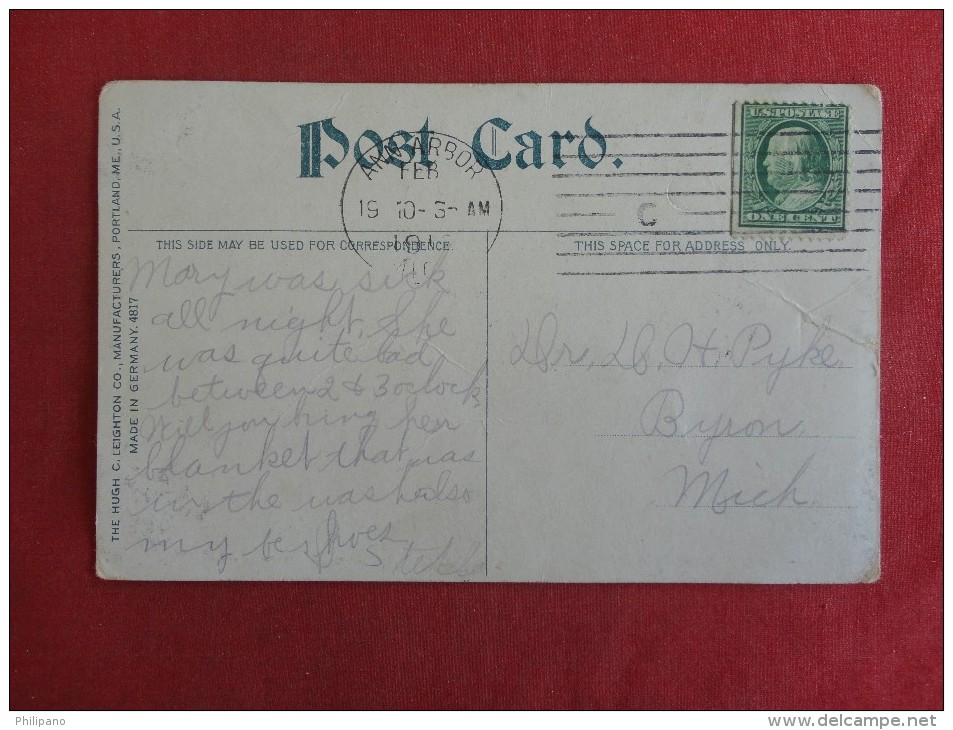 Post Card.
ANN ARBOR
FEB
19 10-3- AM
C
U.S. POSTAGE
ONE CENT
THIS SIDE MAY BE USED FOR CORRESPONDENCE.
THIS SPACE FOR ADDRESS ONLY.
THE HUGH C. LEIGHTON CO., MANUFACTURERS, PORTLAND, ME., U.S.A.
MADE IN GERMANY. 4817
Mary was sick
all night. She
was quite bad
between 2 & 3 oclock
Will you bring her
blanket that was
in the wash also
my shoes
Dr. D. H. Pyke
Byron,
Mich
Philipano
www.delcampe.net